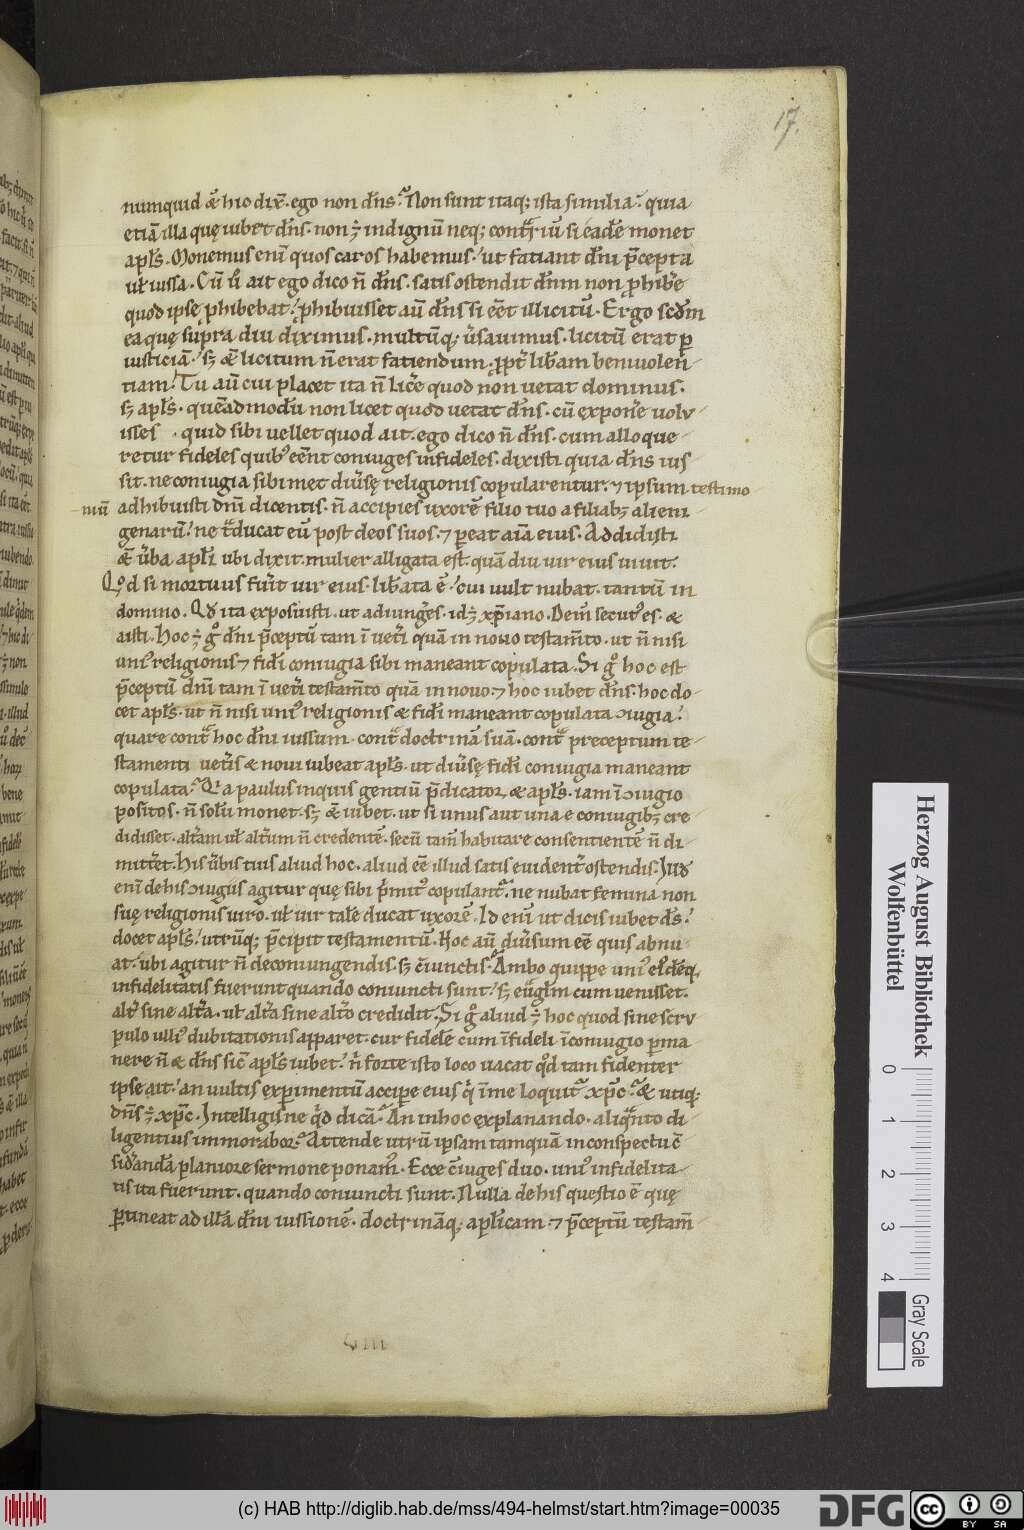 17.
numquid & hic dix̄. ego non dn̄s? Non sunt itaq; ista similia. quia
etiā illa quę iubet dn̄s. non ē indignū neq; contrariū si eadē monet
apls. Monemus enī quos caros habemus. ut fatiant dn̄i p̄cepta
uł iussa. Cū ū ait ego dico n̄ dn̄s. satis ostendit dn̄m non ꝓhibe
quod ipse ꝓhibebat. ꝓhibuisset aū dn̄s si eēt illicitū. Ergo scdm
ea quę supra diu diximus. multūq; ūsauimus. licitū erat ꝑ
iusticiā. sꝫ &̄ licitum n̄ erat fatiendum ꝓpt̄ lib̄am beniuolen
tiam. Tu aū cui placet ita n̄ lice quod non uetat dominus.
sꝫ apls. quēadmodū non licet quod uetat dn̄s. cū exponē uolu
isses . quid sibi uellet quod ait. ego dico n̄ dn̄s. cum alloque
retur fideles quibꝰ eēnt coniuges infideles. dixisti quia dn̄s ius
sit. ne coniugia sibimet diūsę religionis copularentur. ⁊ ipsum testimo
niū adhibuisti dn̄m dicentis. n̄ accipies uxorē filio tuo a filiabꝫ alieni
genarū. ne t̄ducat eū post deos suos. ⁊ ꝑeat aīa eius. Addidisti
&̄ ūba apłi ubi dixit. mulier alligata est quā diu uir eius uiuit.
Qd si mortuus fūit uir eius. lib̄ata ē. cui uult nubat. tantū in
domino. Qd ita exposuisti. ut adiunḡes. id ē xp̄iano. Dein̄ secutꝰ es. &
aisti. Hoc ē ḡ dn̄i p̄ceptū tam ī uet̄i quā in nouo testam̄to. ut n̄ nisi
uniꝰ religionis ⁊ fidi coniugia sibi maneant copulata. Si ḡ hoc est
p̄ceptū dn̄i tam ī uet̄i testam̄to quā in nouo. ⁊ hoc iubet dn̄s. hoc do
cet apls. ut n̄ nisi uniꝰ religionis & fidi maneant copulata ꝯiugia.
quare cont̄ hoc dn̄i iussum. cont̄ doctrinā suā. cont̄ preceptum te
stamenti uet̄is & noui iubeat apls. ut diūsę fidi coniugia maneant
copulata? Qa paulus inquis gentiū p̄dicator & apls. iam ī ꝯiugio
positos. n̄ solū monet. sꝫ &̄ iubet. ut si unus aut una e coniugibꝫ cre
didisset. alt̄am uł alt̄um n̄ credentē. secū tam̄ habitare consentientē n̄ di
mitt̄et. His ūbis tuis aliud hoc. aliud eē illud satis euident̄ ostendis. Illud
enī de his ꝯiugiis agitur quę sibi p̄mitꝰ copulant̄. ne nubat femina non
suę religionis uiro. uł uir talē ducat uxorē. Id enī ut dicis iubet dn̄s.
docet apls. utrūq; p̄cipit testamentū. Hoc aū diūsum eē quis abnu
at. ubi agitur n̄ de coniungendis. sꝫ c̄iunctis. Ambo quippe uniꝰ eiꝰdēq;
infidelitatis fuerunt quando coniuncti sunt. sꝫ euḡlm cum uenisset.
alt̄ sine alt̄a. uł alt̄a sine alt̄o credidit. Si ḡ aliud ē hoc quod sine scru
pulo ulliꝰ dubitationis apparet. cur fidelē cum īfideli ī coniugio ꝑma
nere n̄ & dn̄s sic̄ apls iubet. n̄ forte isto loco uacat qd tam fidenter
ipse ait. an uultis experimentū accipe eius q̄ in me loquit̄ xp̄c? & utiq;
dn̄s ē xp̄c. Intelligis ne q̄d dicā? An in hoc explanando. aliqn̄to di
ligentius immorabor? Attende utrū ipsam tamquā in conspectu c̄
sid̄andā planiore sermone ponamꝰ. Ecce c̄iuges duo. uniꝰ infidelita
tis ita fuerunt. quando coniuncti sunt. Nulla de his questio ē quę
ꝑtineat ad illā dn̄i iussionē. doctrināq; aplicam. ⁊ p̄ceptū testam̄
Herzog August Bibliothek
Wolfenbüttel
0 1 2 3 4
Gray Scale
(c) HAB http://diglib.hab.de/mss/494-helmst/start.htm?image=00035
DFG
cc BY SA